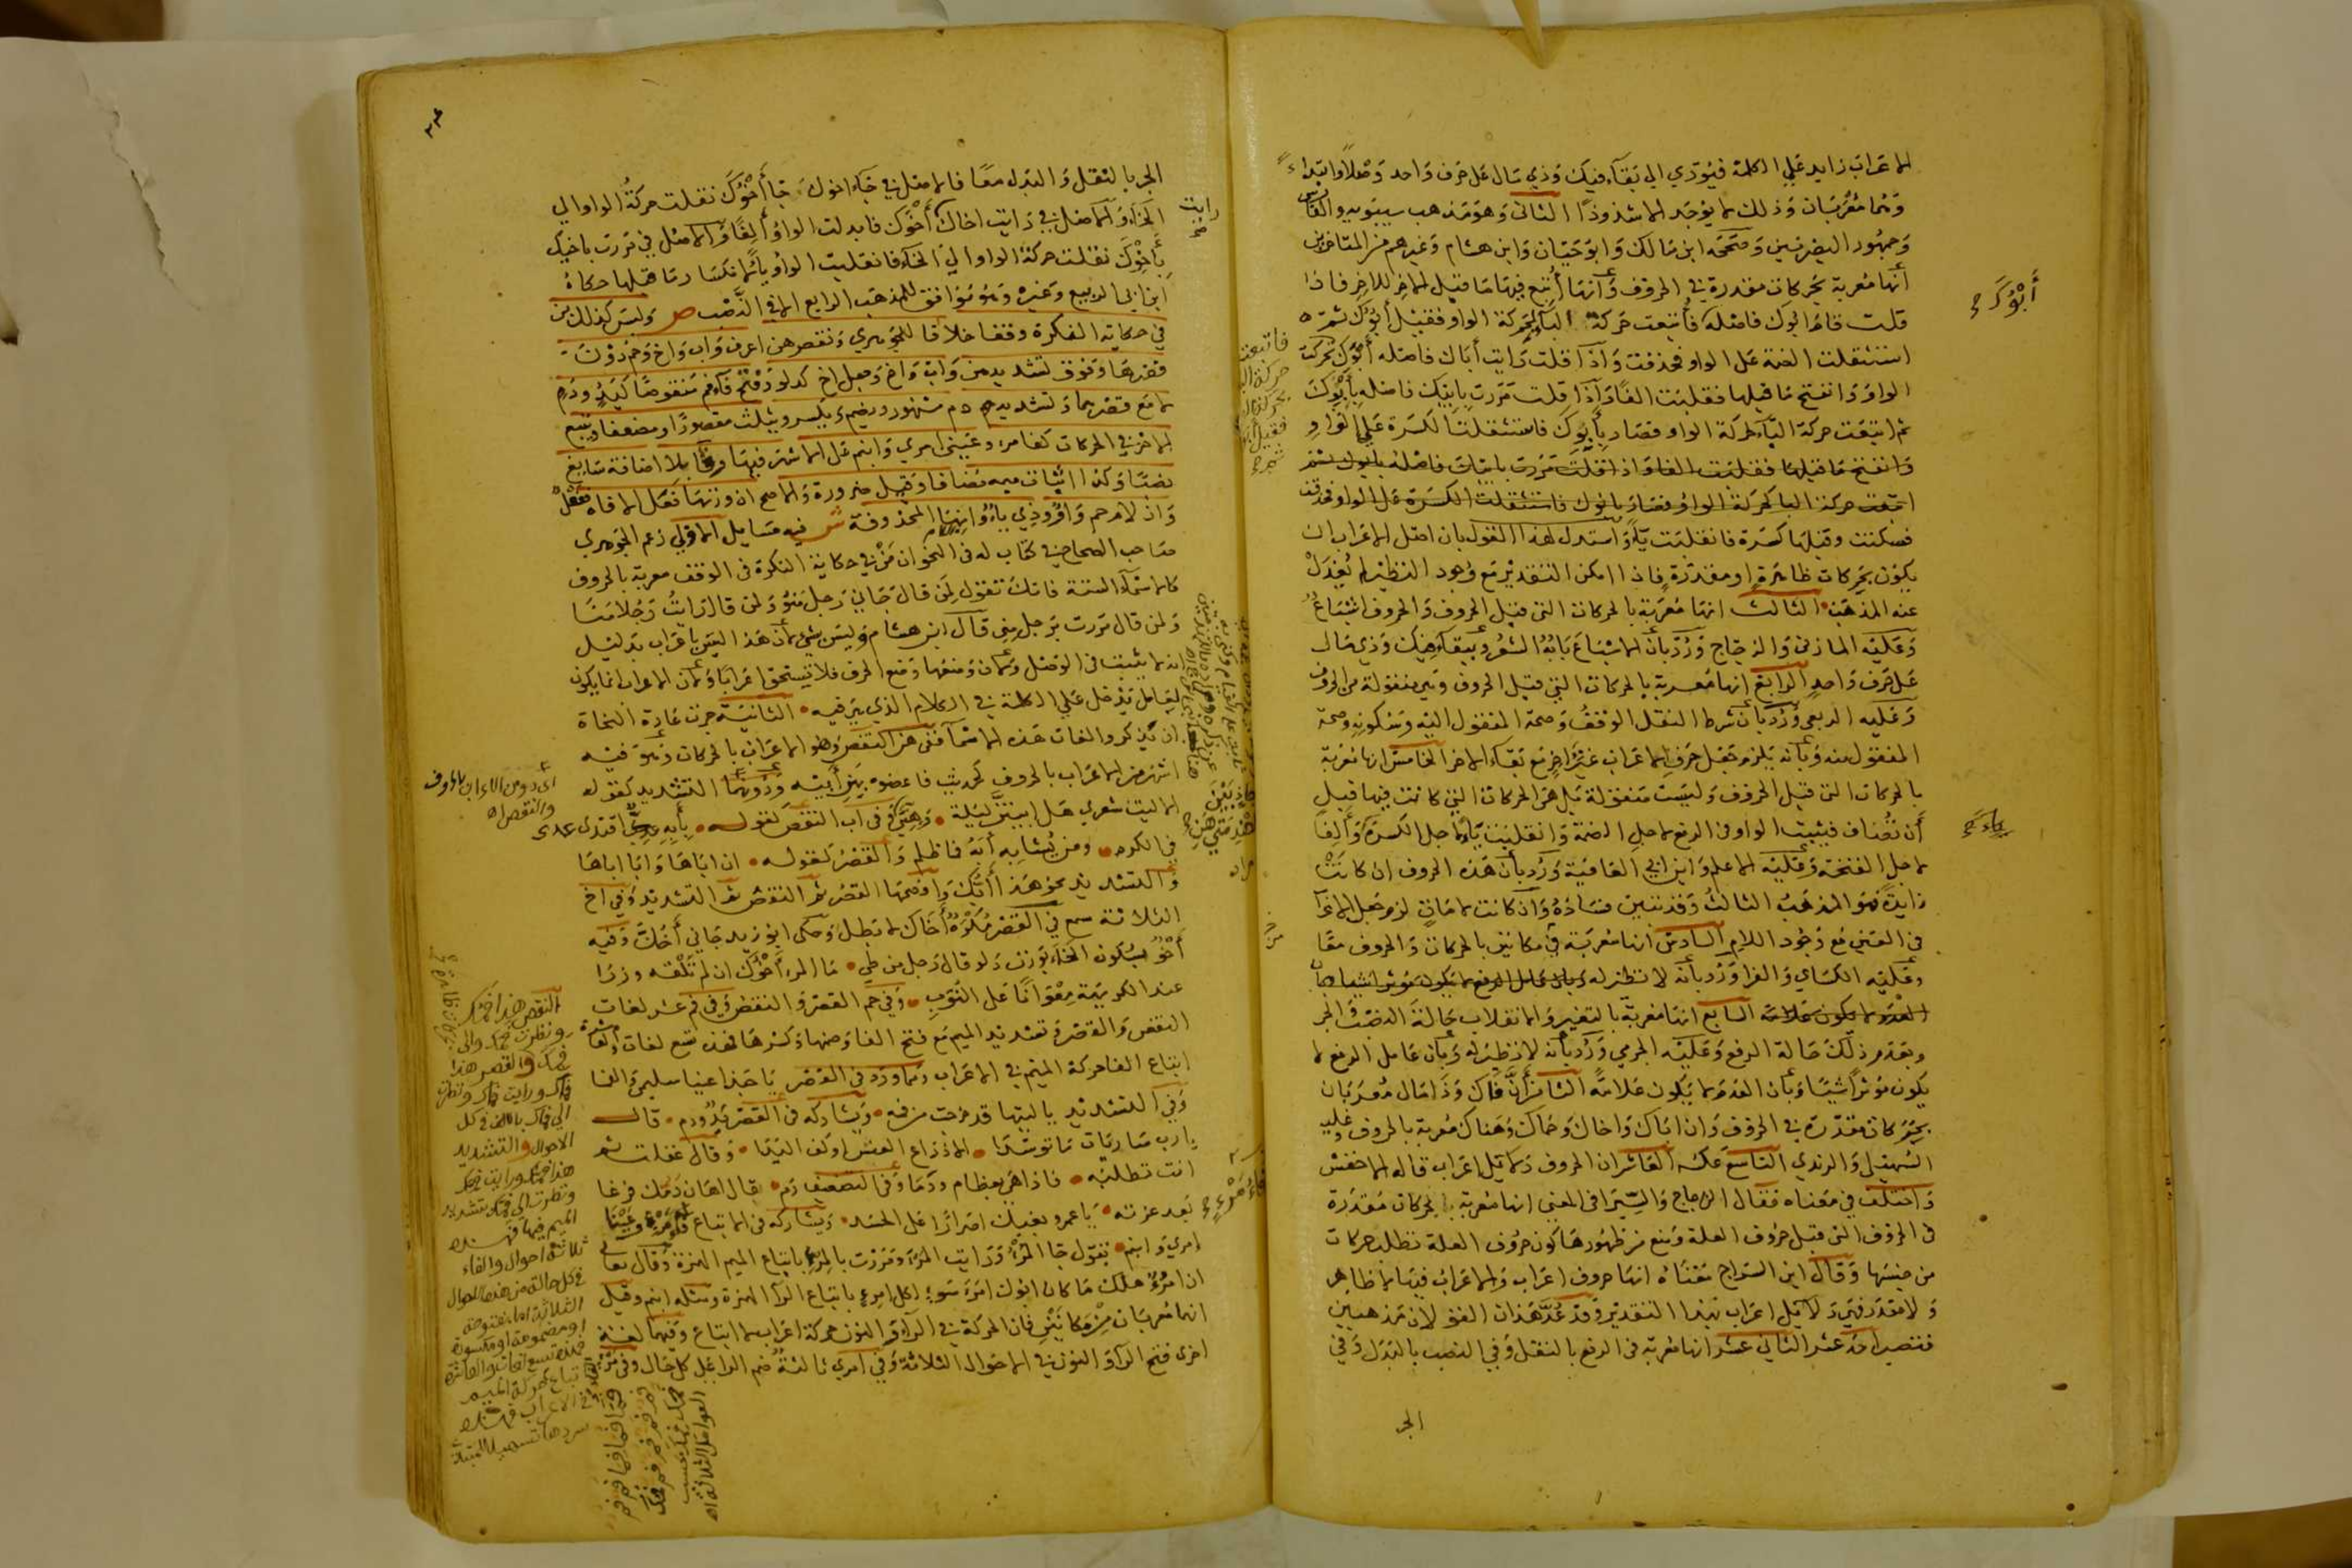 الاعراب زايد على الكلمة فيؤدي الى بقاء فيك وذي مال على حرف واحد وصلا وابتداء
وهما معربان وذلك لا يوجد الا شذوذا الثاني وهو مذهب سيبويه والفارسي
وجمهور البصريين وصححه ابن مالك وابو حيان وابن هشام وغيرهم من المتاخرين
أنها معربة بحركات مقدرة في الحروف وأنها أتبع فيها ما قبل الاخر للاخر فاذا
قلت قام ابوك فاصله أبوك فأتبعت حركة الباء لحركة الواو فقيل أبوك ثم
استثقلت الضمة على الواو فحذفت واذا قلت رايت أباك فاصله أبوك تحركت
الواو وانفتح ما قبلها فقلبت الفا واذا قلت مررت بابيك فاصله بأبوك
ثم اتبعت حركة الباء لحركة الواو فصار بأبوك فاستثقلت الكسرة على الواو
وانفتح ما قبلها فقلبت الفا واذا قلت مررت بابيك فاصله بابوك ثم
اتبعت حركة البا لحركة الواو فصار بابوك فاستثقلت الكسرة على الواو فحذفت
فسكنت وقبلها كسرة فانقلبت ياء واستدل لهذا القول بان اصل الاعراب ان
يكون بحركات ظاهرة او مقدرة فاذا امكن التقدير مع وجود النظير لم يعدل
عنه المذهب الثالث انها معربة بالحركات التي قبل الحروف والحروف اشباع
وعليه المازني والزجاج ورد بأن الاشباع بابه الشعر وببقاء فيك وذي مال
على حرف واحد الرابع انها معربة بالحركات التي قبل الحروف وهي منقولة من الحروف
وعليه الربعي ورد بأن شرط النقل الوقف وصحة المنقول اليه وسكونه وصحة
المنقول منه وبأنه يلزم جعل حرف الاعراب غير آخر مع بقاء الاخر الخامس انها معربة
بالحركات التي قبل الحروف وليست منقولة بل هي الحركات التي كانت فيها قبل
أن تضاف فيثبت الواو في الرفع لاجل الضمة وانقلبت ياء لاجل الكسرة وألفا
لاجل الفتحة وعليه الاعلم وابن ابي العافية ورد بأن هذه الحروف ان كانت
زايدة فهو المذهب الثالث وقد تبين فساده وان كانت لامات لزم جعل الاعراب
في العين مع وجود اللام السادس انها معربة من مكانين بالحركات والحروف معا
وعليه الكساي والفرا ورد بأنه لا نظير له وبان عامل الرفع لا يكون مؤثرا شيا وبان
العدم لا يكون علامة السابع انها معربة بالتغير والانقلاب حالة النصب والجر
وبعدم ذلك حالة الرفع وعليه الجرمي ورد بأنه لا نظير له وبأن عامل الرفع لا
يكون مؤثرا شيئا وبأن العدم لا يكون علامة الثامن أن فاك وذا مال معربان
بحركات مقدرة في الحروف وان اباك واخاك وحماك وهناك معربة بالحروف وعليه
السهيلي والرندي التاسع عكسه العاشر ان الحروف دلائل اعراب قاله الاخفش
واختلف في معناه فقال الزجاج والسيرافي المعنى انها معربة بحركات مقدرة
في الحروف التي قبل حروف العلة ومنع من ظهورها كون حروف العلة تطلب حركات
من جنسها وقال ابن السراج معناه انها حروف اعراب والاعراب فيها لا ظاهر
ولا مقدر فهي دلائل اعراب بهذا التقدير وقد عد هذان القولان مذهبين
فتصير احد عشر الثاني عشر انها معربة في الرفع بالنقل وفي النصب بالبدل وفي
الجر
أبوك
فاتبعت
حركة البا
لحركة الواو
فقيل أبوك
ثم
الجر بالنقل والبدل معا فالاصل في جاء اخوك جا أخوك نقلت حركة الواو الى
الخاء والاصل في رايت اخاك أخوك فابدلت الواو ألفا والاصل في مررت باخيك
بأخوك نقلت حركة الواو الى الخاء فانقلبت الواو ياء لانكسار ما قبلها حكاه
ابن ابي الربيع وغيره وهو موافق للمذهب الرابع الا في النصب ص وليس كذلك من
في حكاية النكرة وقفا خلافا للجوهري ونقص هن اعرف واب واخ وحم دون
قصرها وفوق تشديد هن واب واخ وجعل اخ كدلو وفتح فاء فم منقوصا كيد ودم
لا مع قصرهما وتشديد دم مشهور ويضم ويكسر ويثلث مقصورا او مضعفا ويتبع
الاخر في الحركات كفا مرء وعيني امري وابنم على الاشهر فيها وفا بلا اضافة سايغ
نصبا وكذا اثبات ميمه مضافا وقيل ضرورة والاصح ان وزنها فعل الا فاه ففعل
وان لام حم واو وذي ياء وانها المحذوفة ش فيه مسايل الاولى زعم الجوهري
صاحب الصحاح في كتاب له في النحو ان من في حكاية النكرة في الوقف معربة بالحروف
كالاسماء الستة فانك تقول لمن قال جاني رجل منو ولمن قال رايت رجلا منا
ولمن قال مررت برجل مني قال ابن هشام وليس بشيء لأن هذا ليس باعراب بدليل
انه لا يثبت في الوصل ولأن وضعها وضع الحرف فلا تستحق اعرابا ولأن الاعراب انما يكون
لعامل يدخل على الكلمة في الكلام الذي هي فيه الثانية جرت عادة النحاة
ان يذكروا لغات هذه الاسماء ففي هن النقص وهو الاعراب بالحركات وهو فيه
اشهر من الاعراب بالحروف لحديث فاعضوه بهن أبيه ودونهما التشديد كقوله
الا ليت شعري هل ابيتن ليلة وهني وفي اب النقص كقوله بأبه اقتدى عدي
في الكرم ومن يشابه أبه فما ظلم والقصر كقوله ان اباها وابا اباها
والتشديد نحو هذا أبك وافصحها القصر ثم النقص ثم التشديد وفي اخ
الثلاثة سمع في القصر مكره أخاك لا بطل وحكى ابو زيد جاني أخك وفيه
أخو بسكون الخاء بوزن دلو قال رجل من طي ما المرء أخوك ان لم تلفه وزرا
عند الكريهة معوانا على النوب وفي حم القصر والنقص وفي فم عشر لغات
النقص والقصر وتشديد الميم مع فتح الفا وضمها وكسرها فهذه تسع لغات والعاشرة
اتباع الفا حركة الميم في الاعراب ومما ورد في القصر يا حبذا عينا سليمى والفا
وفي التشديد يا ليتها قد خرجت من فمه ويشاركه في القصر يد ودم قال
يا رب ساريات ما توسدا الا ذراع العنس او كف اليدا وقال غفلت ثم
اتت تطلبه فاذا هي بعظام ودما وفي التضعيف دم قال اهان دمك فرغا
بعد عزته يا عمرو بغيك اصرارا على الحسد ويشاركه في الاتباع فاء مرء وعينا
امري وابنم تقول جا المرء ورايت المرء ومررت بالمرء باتباع الميم الهمزة وقال تعالى
ان امرؤ هلك ما كان ابوك امرأ سوء لكل امرئ باتباع الرا الهمزة ومثله ابنم وقيل
انهما معربان من مكانين فان الحركة في الراء والنون حركة اعراب لا اتباع وفيهما لغة
اخرى فتح الراء والنون في الاحوال الثلاثة وفي امري ثالثة ضم الرا على كل حال وفي مرء
رايت
اي دون الاعراب بالحروف
والنقص
النقص هذا فمك
ونظرت فمك والى
فمك والقصر هذا
فماك ورايت فماك ونظرت
الى فماك بالالف في كل
الاحوال والتشديد
هذا فمك ورايت فمك
ونظرت الى فمك بتشديد
الميم فيها فهذه
ثلاثة احوال والفاء
في كل حالة من هذه الاحوال
الثلاثة اما مفتوحة
او مضمومة او مكسورة
فهذه تسع لغات والعاشرة
اتباع الفاء حركة الميم
في الاعراب فهذه
سردها تسهيلا